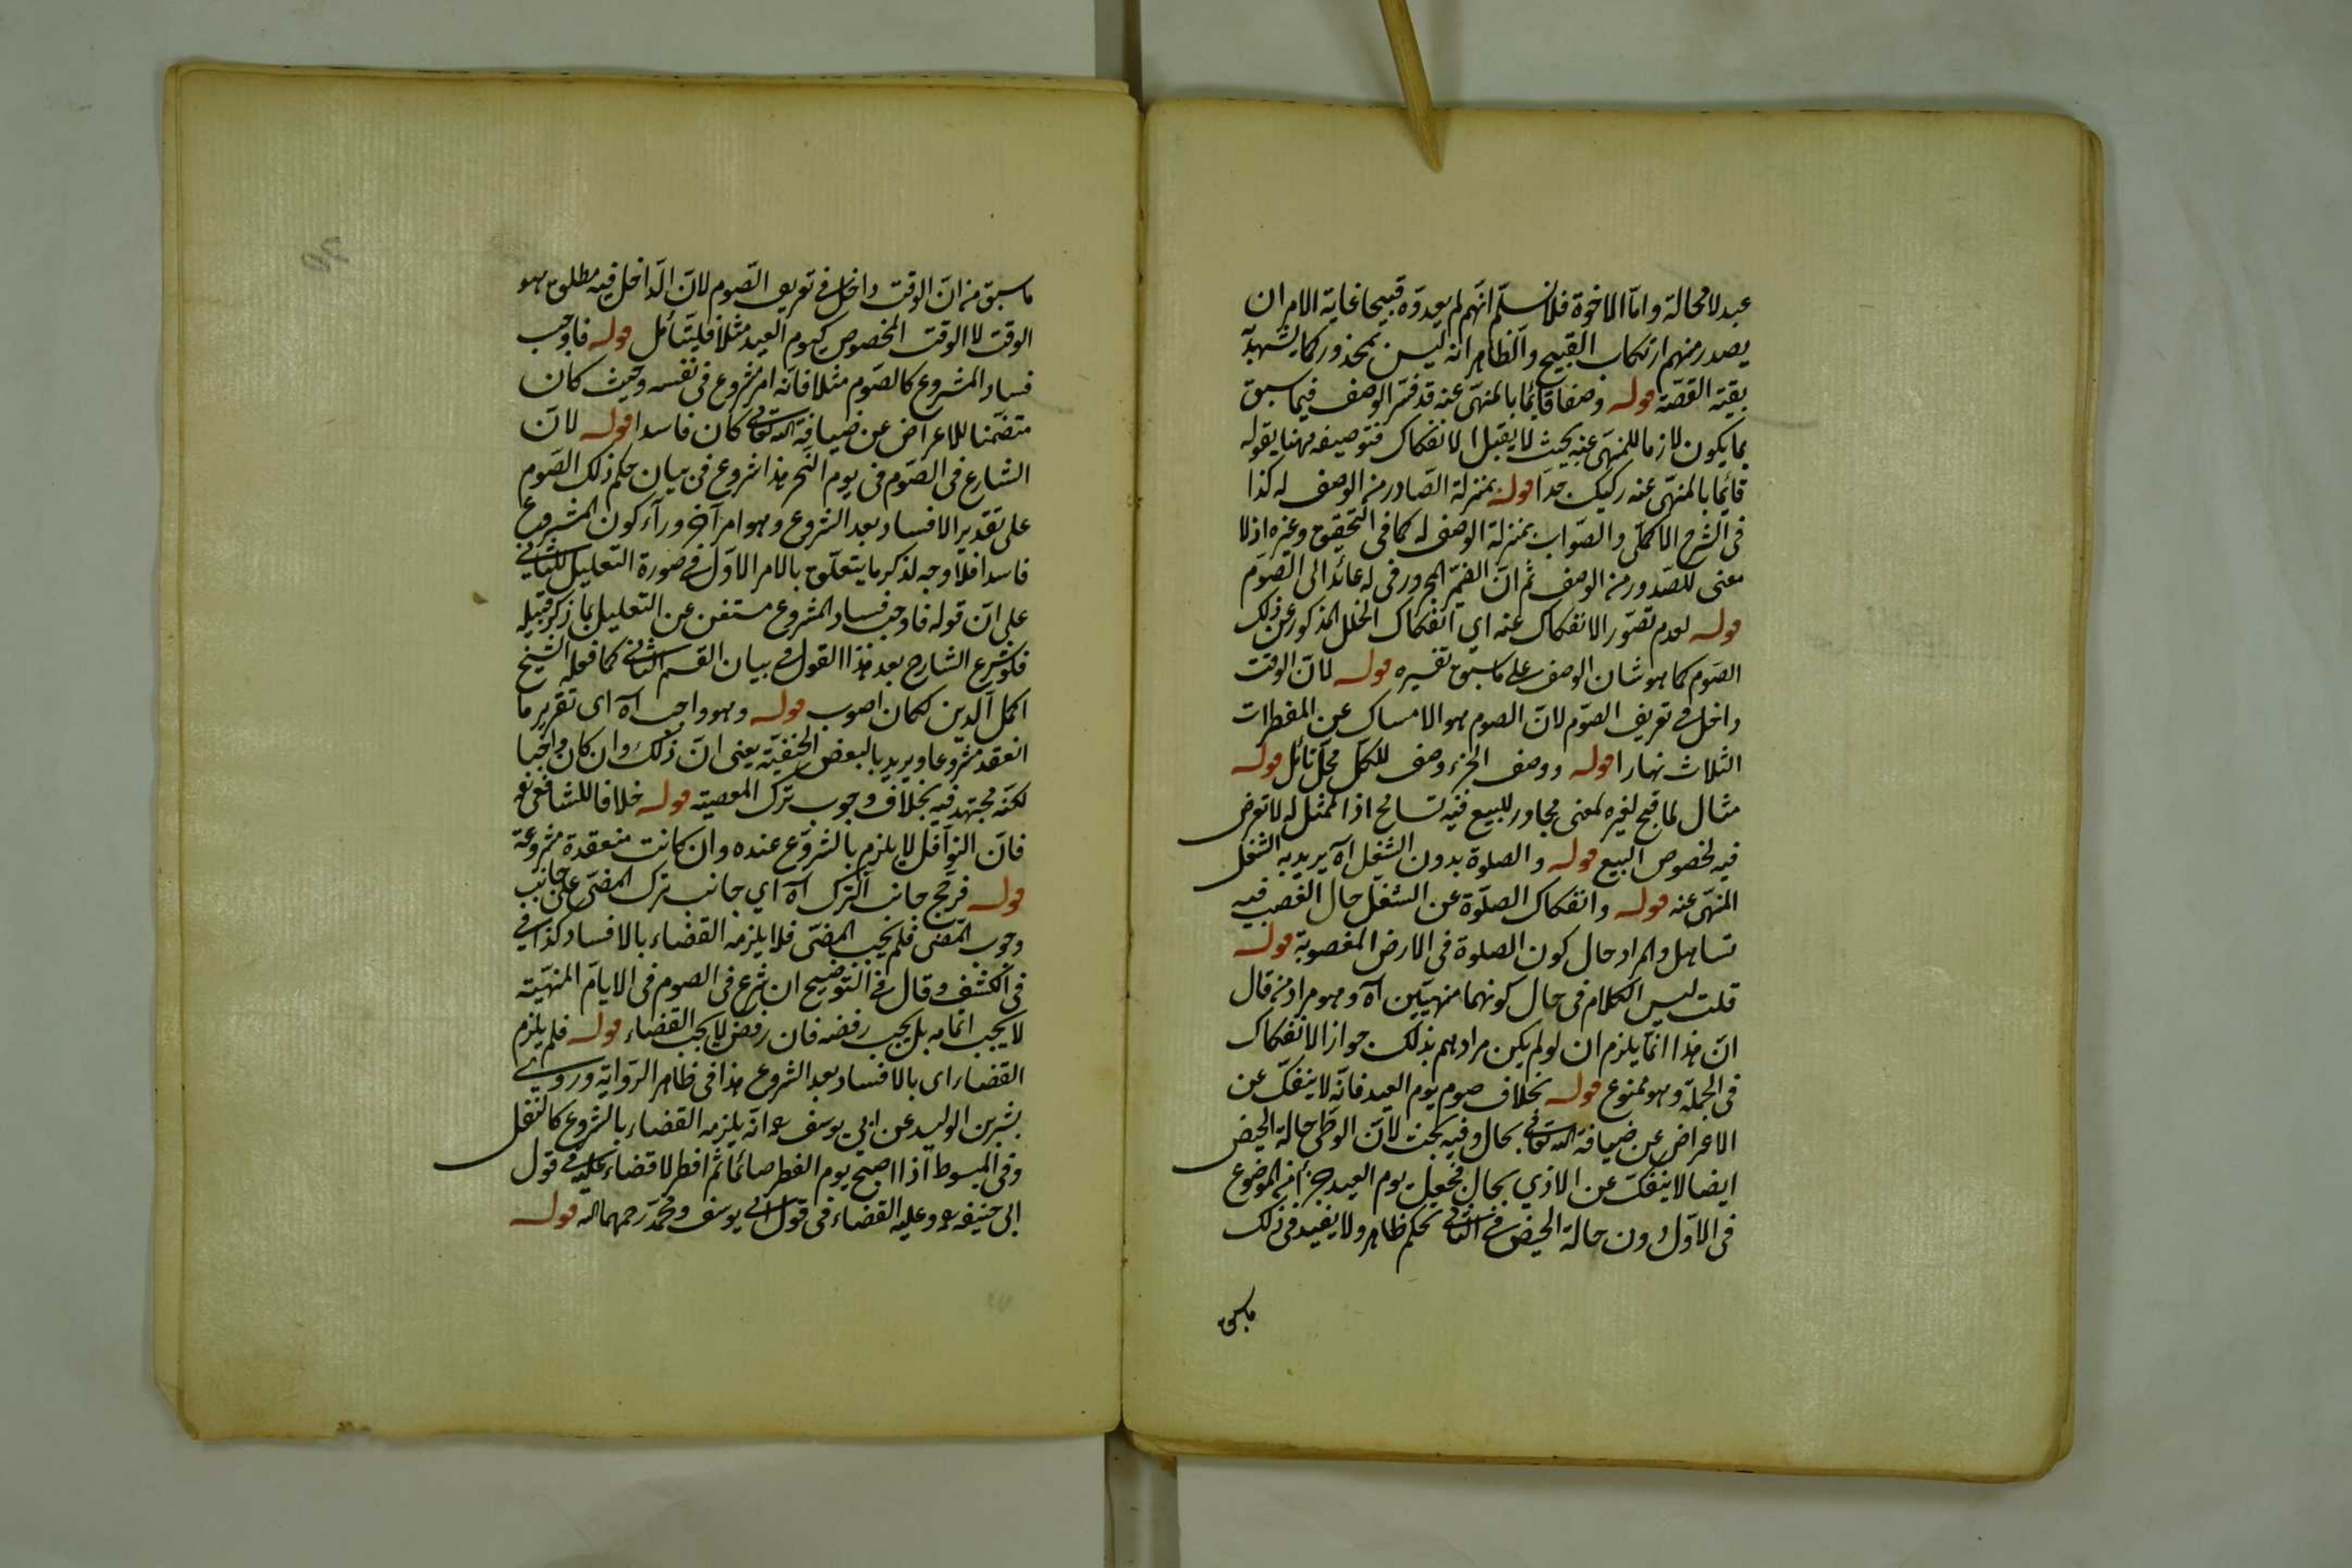 عبد لا محالة واما الاخوة فلا نسلم انهم لم يعدوه قبيحا غاية الامر ان
يصدر منهم ارتكاب القبيح والظاهر انه ليس بمحذور كما يشهد به
بقية القصة قوله وصفا قائما بالمنهى عنه قد فسر الوصف فيما سبق
بما يكون لازما للمنهى عنه بحيث لا يقبل الانفكاك فتوصيفه ههنا بقوله
قائما بالمنهى عنه ركيك جدا قوله بمنزلة الصادر من الوصف له كذا
فى الشرح الاكملى والصواب بمنزلة الوصف له كما فى التحقيق وغيره اذ لا
معنى للصدور من الوصف ثم ان الضمير المجرور فى له عائد الى الصوم
قوله لعدم تصور الانفكاك عنه اى انفكاك الخلل المذكور عن ذلك
الصوم كما هو شان الوصف على ما سبق تفسيره قوله لان الوقت
داخل فى تعريف الصوم لان الصوم هو الامساك عن المفطرات
الثلاث نهارا قوله ووصف الجزء وصف للكل محل تأمل قوله
مثال لما قبح لغيره لمعنى مجاور للبيع فيه تسامح اذ الممثل له لا تعرض
فيه لخصوص البيع قوله والصلوة بدون الشغل اه يريد به الشغل
المنهى عنه قوله وانفكاك الصلوة عن الشغل حال الغصب فيه
تساهل والمراد حال كون الصلوة فى الارض المغصوبة قوله
قلت ليس الكلام فى حال كونهما منهيين اه وهو مراد من قال
ان هذا انما يلزم ان لو لم يكن مرادهم بذلك جواز الانفكاك
فى الجملة وهو ممنوع قوله بخلاف صوم يوم العيد فانه لا ينفك عن
الاعراض عن ضيافة الله تعالى بحال وفيه بحث لان الوطى حالة الحيض
ايضا لا ينفك عن الاذى بحال فجعل يوم العيد جزأ من الموضوع
فى الاول دون حالة الحيض فى الثانى تحكم ظاهر ولا يفيد فى ذلك
ما سبق
ما سبق من ان الوقت داخل فى تعريف الصوم لان الداخل فيه مطلق هو
الوقت لا الوقت المخصوص كيوم العيد مثلا فليتأمل قوله فاوجب
فساد المشروع كالصوم مثلا فانه امر مشروع فى نفسه وحيث كان
متضمنا للاعراض عن ضيافة الله تعالى كان فاسدا قوله لان
الشارع فى الصوم فى يوم النحر هذا شروع فى بيان حكم ذلك الصوم
على تقدير الافساد بعد الشروع وهو امر آخر ورآء كون المشروع
فاسدا فلا وجه لذكر ما يتعلق بالامر الاول فى صورة التعليل للثانى
على ان قوله فاوجب فساد المشروع مستغن عن التعليل بما ذكر قبيله
فلو شرع الشارح بعد هذا القول فى بيان القسم الثانى كما فعله الشيخ
اكمل الدين لكان اصوب قوله وهو واجب اه اى تقرير ما
انعقد مشروعا ويريد بالبعض الحنفية يعنى ان ذلك وان كان واجبا
لكنه مجتهد فيه بخلاف وجوب ترك المعصية قوله خلافا للشافعى
فان النوافل لا يلزم بالشروع عنده وان كانت منعقدة مشروعة
قوله فرجح جانب الترك اه اى جانب ترك المضى على جانب
وجوب المضى فلم يجب المضى فلا يلزمه القضاء بالافساد كذا فى
فى الكشف وقال فى التوضيح ان شرع فى الصوم فى الايام المنهية
لا يجب اتمامه بل يجب رفضه فان رفض لا يجب القضاء قوله فلم يلزم
القضاء اى بالافساد بعد الشروع هذا فى ظاهر الرواية وروى
بشر بن الوليد عن ابى يوسف انه يلزمه القضاء بالشروع كالنفل
وفى المبسوط اذا اصبح يوم الفطر صائما ثم افطر لا قضاء عليه فى قول
ابى حنيفه وعليه القضاء فى قول ابى يوسف ومحمد رحمهما الله قوله